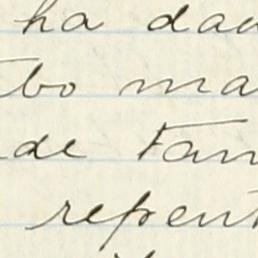 ha dad
bo ma
de tan
repent